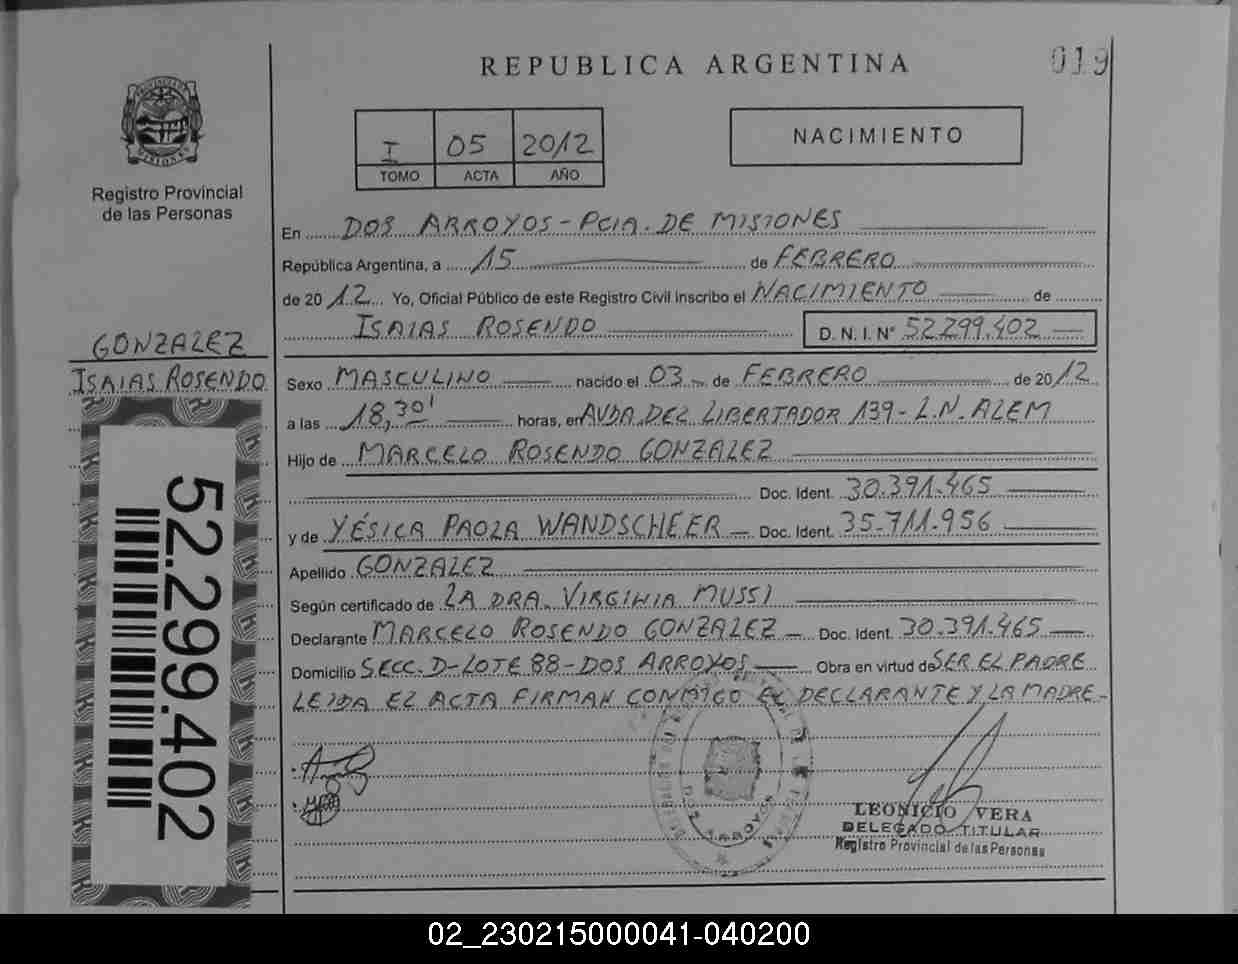 REPUBLICA ARGENTINA
019
PROVINCIA DE
MISIONES
Registro Provincial
de las Personas
I 05 2012
TOMO ACTA AÑO
NACIMIENTO
En DOS ARROYOS - PCIA. DE MISIONES
República Argentina, a 15 de FEBRERO
de 2012 Yo, Oficial Público de este Registro Civil inscribo el NACIMIENTO de
ISAIAS ROSENDO D. N. I. N° 52.299.402
GONZALEZ
ISAIAS ROSENDO
Sexo MASCULINO nacido el 03 de FEBRERO de 2012
a las 18,30' horas, en AVDA. DEL LIBERTADOR 139 - L.N. ALEM
Hijo de MARCELO ROSENDO GONZALEZ
Doc. Ident. 30.391.465
y de YÉSICA PAOLA WANDSCHEER Doc. Ident. 35.711.956
Apellido GONZALEZ
Según certificado de LA DRA. VIRGINIA MUSSI
Declarante MARCELO ROSENDO GONZALEZ Doc. Ident. 30.391.465
Domicilio SECC. D-LOTE 88 - DOS ARROYOS Obra en virtud de SER EL PADRE
LEIDA EL ACTA FIRMAN CONMIGO EL DECLARANTE Y LA MADRE-
52.299.402
DOS ARROYOS
LEONICIO VERA
DELEGADO TITULAR
Registro Provincial de las Personas
02_230215000041-040200